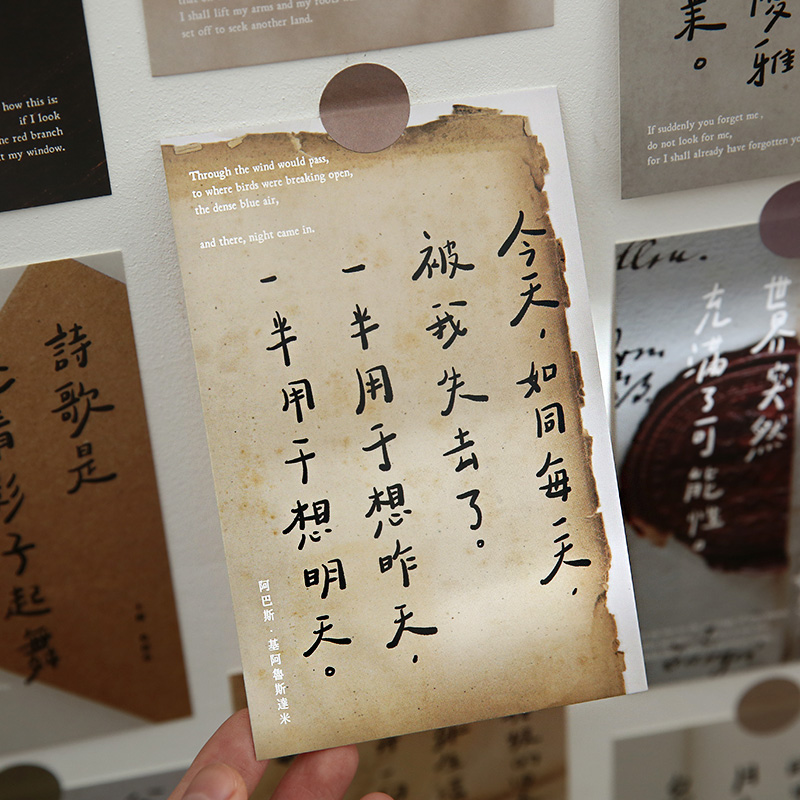 that
I shall lift my arms and my
set off to seek another land.
how this is:
if I look
red branch
my window.
If suddenly you forget me,
do not look for me,
for I shall already have forgotten
Through the wind would pass,
to where birds were breaking open,
the dense blue air,
and there, night came in.
今天，如同每一天，
被我失去了。
一半用于想昨天，
一半用于想明天。
阿巴斯·基阿魯斯達米
詩歌是
影子起舞
世界突然
充滿了可能性。
雅
。